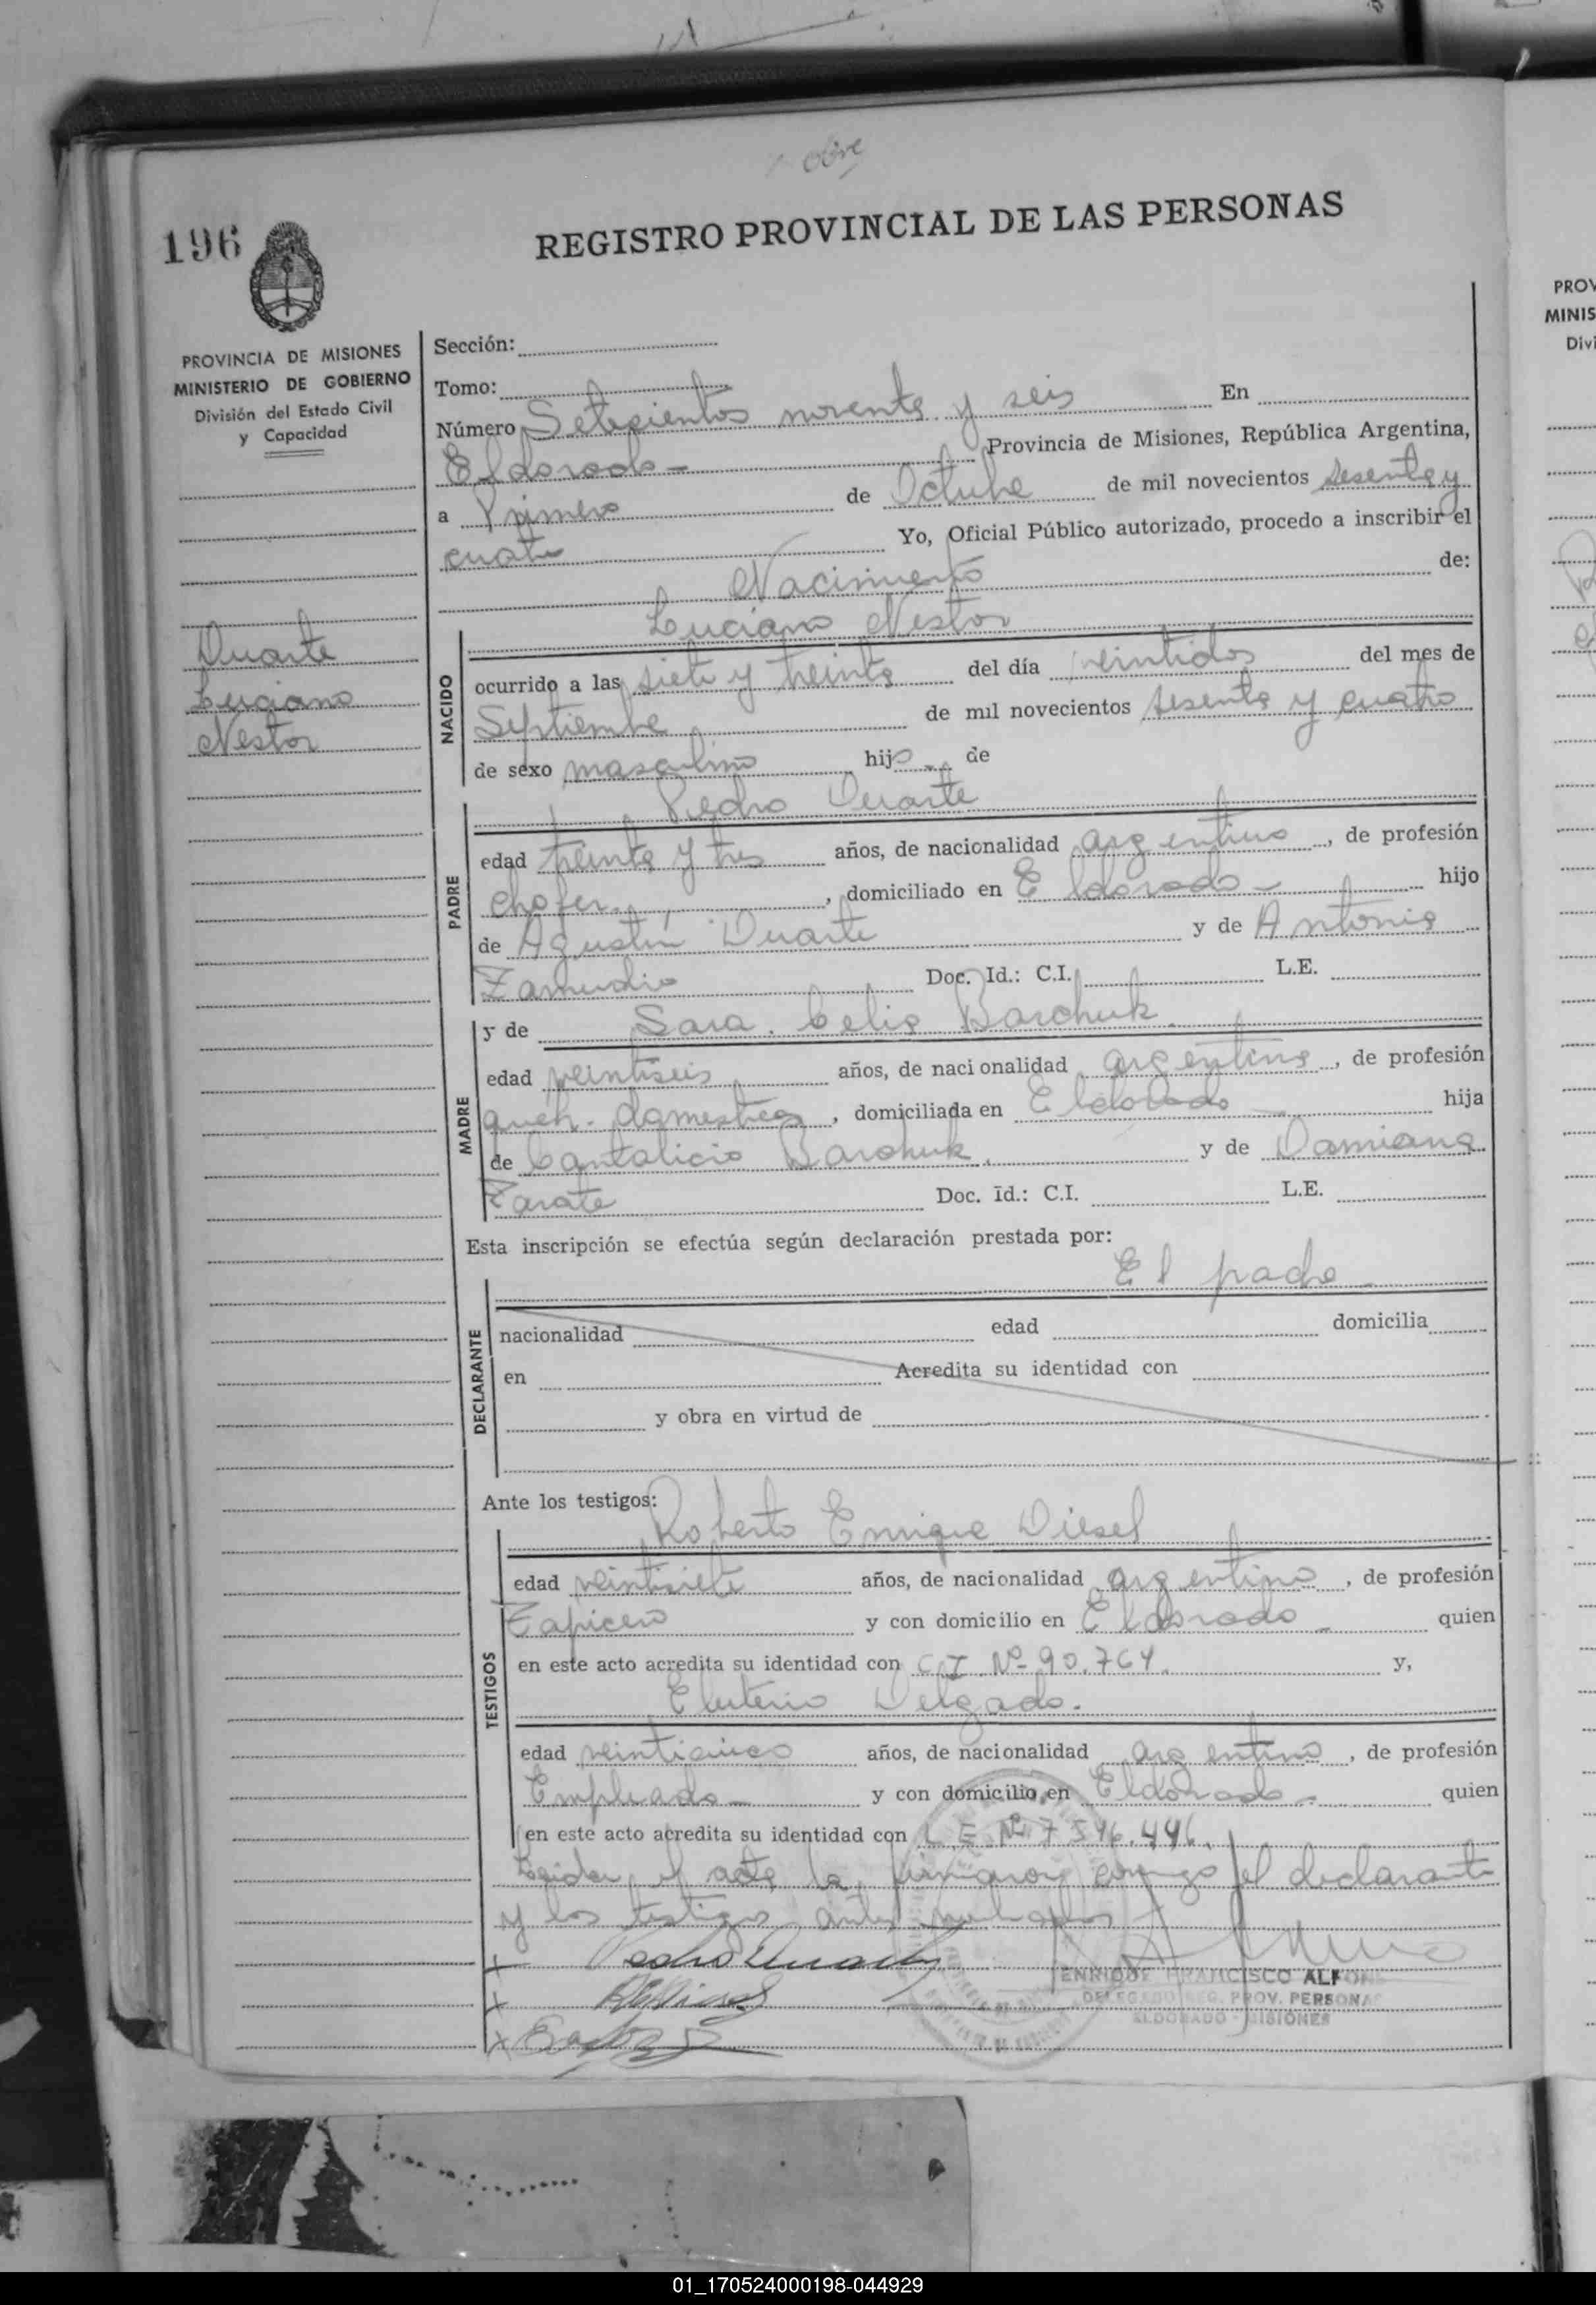 obre
196
REGISTRO PROVINCIAL DE LAS PERSONAS
PROVINCIA DE MISIONES
MINISTERIO DE GOBIERNO
División del Estado Civil
y Capacidad
Duarte
Luciano
Nestor
Sección:
Tomo:
Número Setecientos noventa y seis En
Eldorado - Provincia de Misiones, República Argentina,
a Primero de Octubre de mil novecientos sesenta y
cuatro Yo, Oficial Público autorizado, procedo a inscribir el
Nacimiento de:
Luciano Nestor
NACIDO
ocurrido a las siete y treinta del día veintidos del mes de
Septiembre de mil novecientos sesenta y cuatro
de sexo masculino hijo de
Pedro Duarte
PADRE
edad treinta y tres años, de nacionalidad argentino, de profesión
chofer, domiciliado en Eldorado - hijo
de Agustín Duarte y de Antonia
Zamudio Doc. Id.: C.I. L.E.
MADRE
y de Sara Celia Barchuk
edad veintiseis años, de nacionalidad argentina, de profesión
queh. domesticos, domiciliada en Eldorado - hija
de Cantalicio Barchuk y de Damiana
Zarate Doc. Id.: C.I. L.E.
Esta inscripción se efectúa según declaración prestada por:
El padre
DECLARANTE
nacionalidad edad domicilia
en Acredita su identidad con
y obra en virtud de
Ante los testigos:
Roberto Enrique Diesel
TESTIGOS
edad veintisiete años, de nacionalidad argentino, de profesión
Tapicero y con domicilio en Eldorado - quien
en este acto acredita su identidad con C I Nº 90.764. y,
Eleuterio Delgado.
edad veinticinco años, de nacionalidad argentino, de profesión
Empleado - y con domicilio en Eldorado - quien
en este acto acredita su identidad con L E Nº 7 596.496.
Leida el acta la firmaron conmigo el declarante
y los testigos antes nombrados
Pedro Duarte
ENRIQUE FRANCISCO ALFONS
DELEGADO REG. PROV. PERSONAS
ELDORADO - MISIONES
PROV
MINIS
Divi
01_170524000198-044929